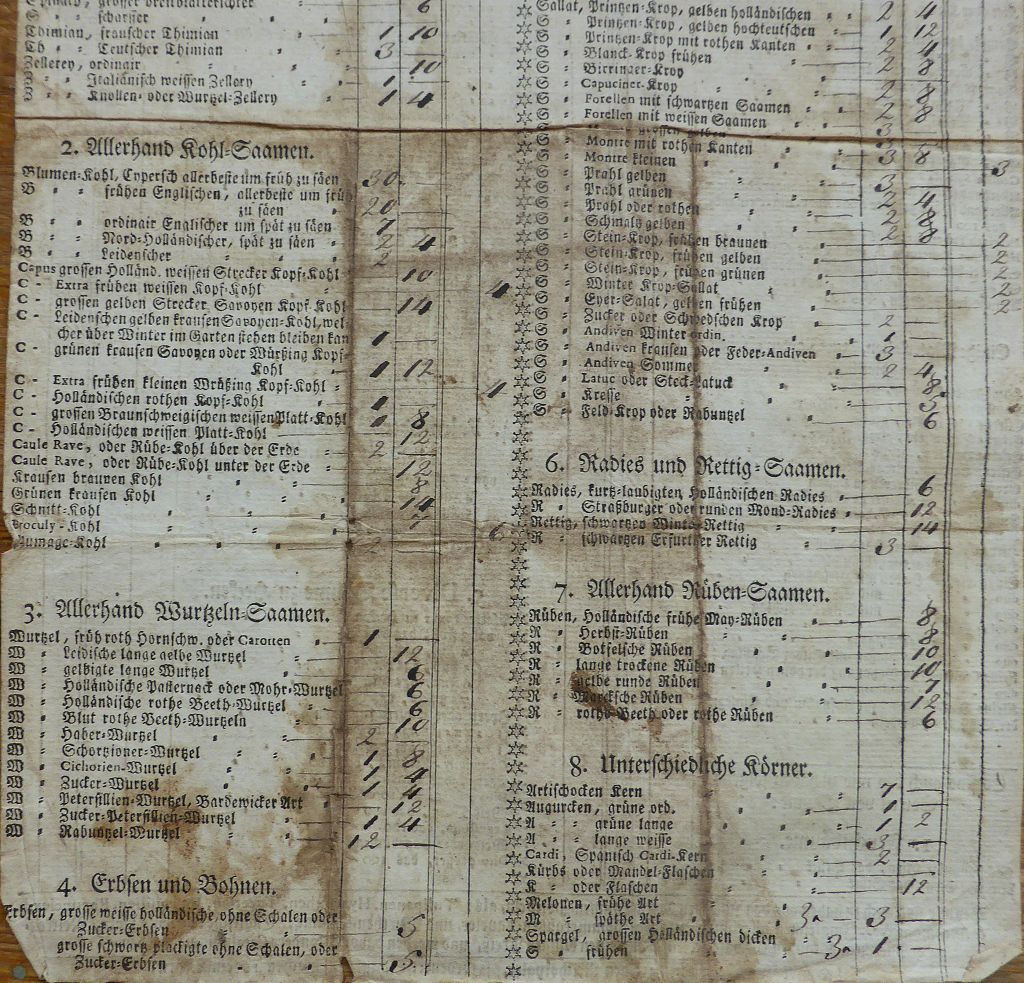 Spinald, grosser breitblätterichter
S = scharffer 6
Thimian, frantzscher Thimian 1 10
Th = = Teutscher Thimian 3
Zellerey, ordinair 10
Z = = Italiänisch weissen Zellery 1
Z = = Knollen- oder Wurtzel-Zellery 1 4
2. Allerhand Kohl-Saamen.
Blumen-Kohl, Cypersch allerbeste um früh zu säen 30.
B = = frühen Englischen, allerbeste um früh
zu säen 20
B = = ordinair Englischer um spät zu säen 7
B = = Nord-Holländischer, spät zu säen 2 4
B = = Leidenscher 2
Capus grossen Holländ. weissen Strecker Kopf-Kohl 10
C - Extra frühen weissen Kopf-Kohl
C - grossen gelben Strecker, Savoyen Kopf-Kohl 14
C - Leidenschen gelben krausen Savoyen-Kohl, wel-
cher über Winter im Garten stehen bleiben kan 1
C - grünen krausen Savoyen oder Würßing Kopf-
Kohl 1 12
C - Extra frühen kleinen Würßing Kopf-Kohl
C - Holländischen rothen Kopf-Kohl 1
C - grossen Braunschweigischen weissen Platt-Kohl 1 8
C - Holländischen weissen Platt-Kohl 12
Caule Rave, oder Rübe-Kohl über der Erde 2
Caule Rave, oder Rübe-Kohl unter der Erde 12
Krausen braunen Kohl 8
Grünen krausen Kohl
Schnitt-Kohl 14
Broculy-Kohl 7
Plumage-Kohl 2
3. Allerhand Wurtzeln-Saamen.
Wurtzel, früh roth Hornschw. oder Carotten 1
W = Leidische lange gelbe Wurtzel 12
W = gelbigte lange Wurtzel 6
W = Holländische Pasternack oder Mohr-Wurtzel 6
W = Holländische rothe Beeth-Wurtzel 6
W = Blut rothe Beeth-Wurtzeln 10
W = Haber-Wurtzel 2
W = Schortzioner-Wurtzel 1 8
W = Cichorien-Wurtzel 1 4
W = Zucker-Wurtzel 1 4
W = Petersillien-Wurtzel, Bardewicker Art 12
W = Zucker-Petersillien-Wurtzel 1 4
W = Rabuntzel-Wurtzel 12
4. Erbsen und Bohnen.
Erbsen, grosse weisse holländische, ohne Schalen oder
Zucker-Erbsen 5
grosse schwartz plackigte ohne Schalen, oder
Zucker-Erbsen 5
Sallat, Printzen-Krop, gelben holländischen 2 4
S = Printzen-Krop, gelden hochteutschen 1 12
S = Printzen-Krop mit rothen Kanten 2 4
S = Blanck-Krop frühen 2 8
S = Birringer-Krop
S = Capuciner-Krop 2 8
S = Forellen mit schwartzen Saamen 2 8
S = Forellen mit weissen Saamen
S = grossen gelben 3
S = Montre mit rothen Kanten
S = Montre kleinen 3 8
S = Prahl gelben 3
S = Prahl grünen 3
S = Prahl oder rothen 2 4
S = Schmaltz gelben 2 8
S = Stein-Krop, frühen braunen 2 8 2
S = Stein-Krop, frühen gelben 2
S = Stein-Krop, frühen grünen 2
4 S = Winter Krop-Sallat 2
S = Eyer-Salat, gelben frühen 2
S = Zucker oder Schwedschen Krop 2
S = Andiven Winter ordin. 1
S = Andiven krausen oder Feder-Andiven 3
S = Andiven Sommer 2 4
S = Latuc oder Steck-Latuck 8
1 S = Kresse 5
S = Feld-Krop oder Rabuntzel 6
6. Radies und Rettig-Saamen.
Radies, kurtz-laubigten, Holländischen Radies 6
R = Straßburger oder runden Mond-Radies 12
Rettig, schwartzen Winter-Rettig 14
6 R = schwartzen Erfurther Rettig 3
7. Allerhand Rüben-Saamen.
Rüben, Holländische frühe May-Rüben 8
R = Herbst-Rüben 8
R = Botfelsche Rüben 10
R = lange trockene Rüben 10
R = gelbe runde Rüben 7
R = Märcksche Rüben 12
R = rothe Beeth oder rothe Rüben 6
8. Unterschiedliche Körner.
Artischocken Kern 7
Augurcken, grüne ord. 1
A = = grüne lange 1 2
A = = lange weisse 3
Cardi, Spanisch Cardi-Kern 2
Kürbs oder Mandel-Flaschen
K = oder Flaschen 12
Melonen, frühe Art
M = späthe Art 3a 3
Spargel, grossen Holländischen dicken
S = frühen 3a 1